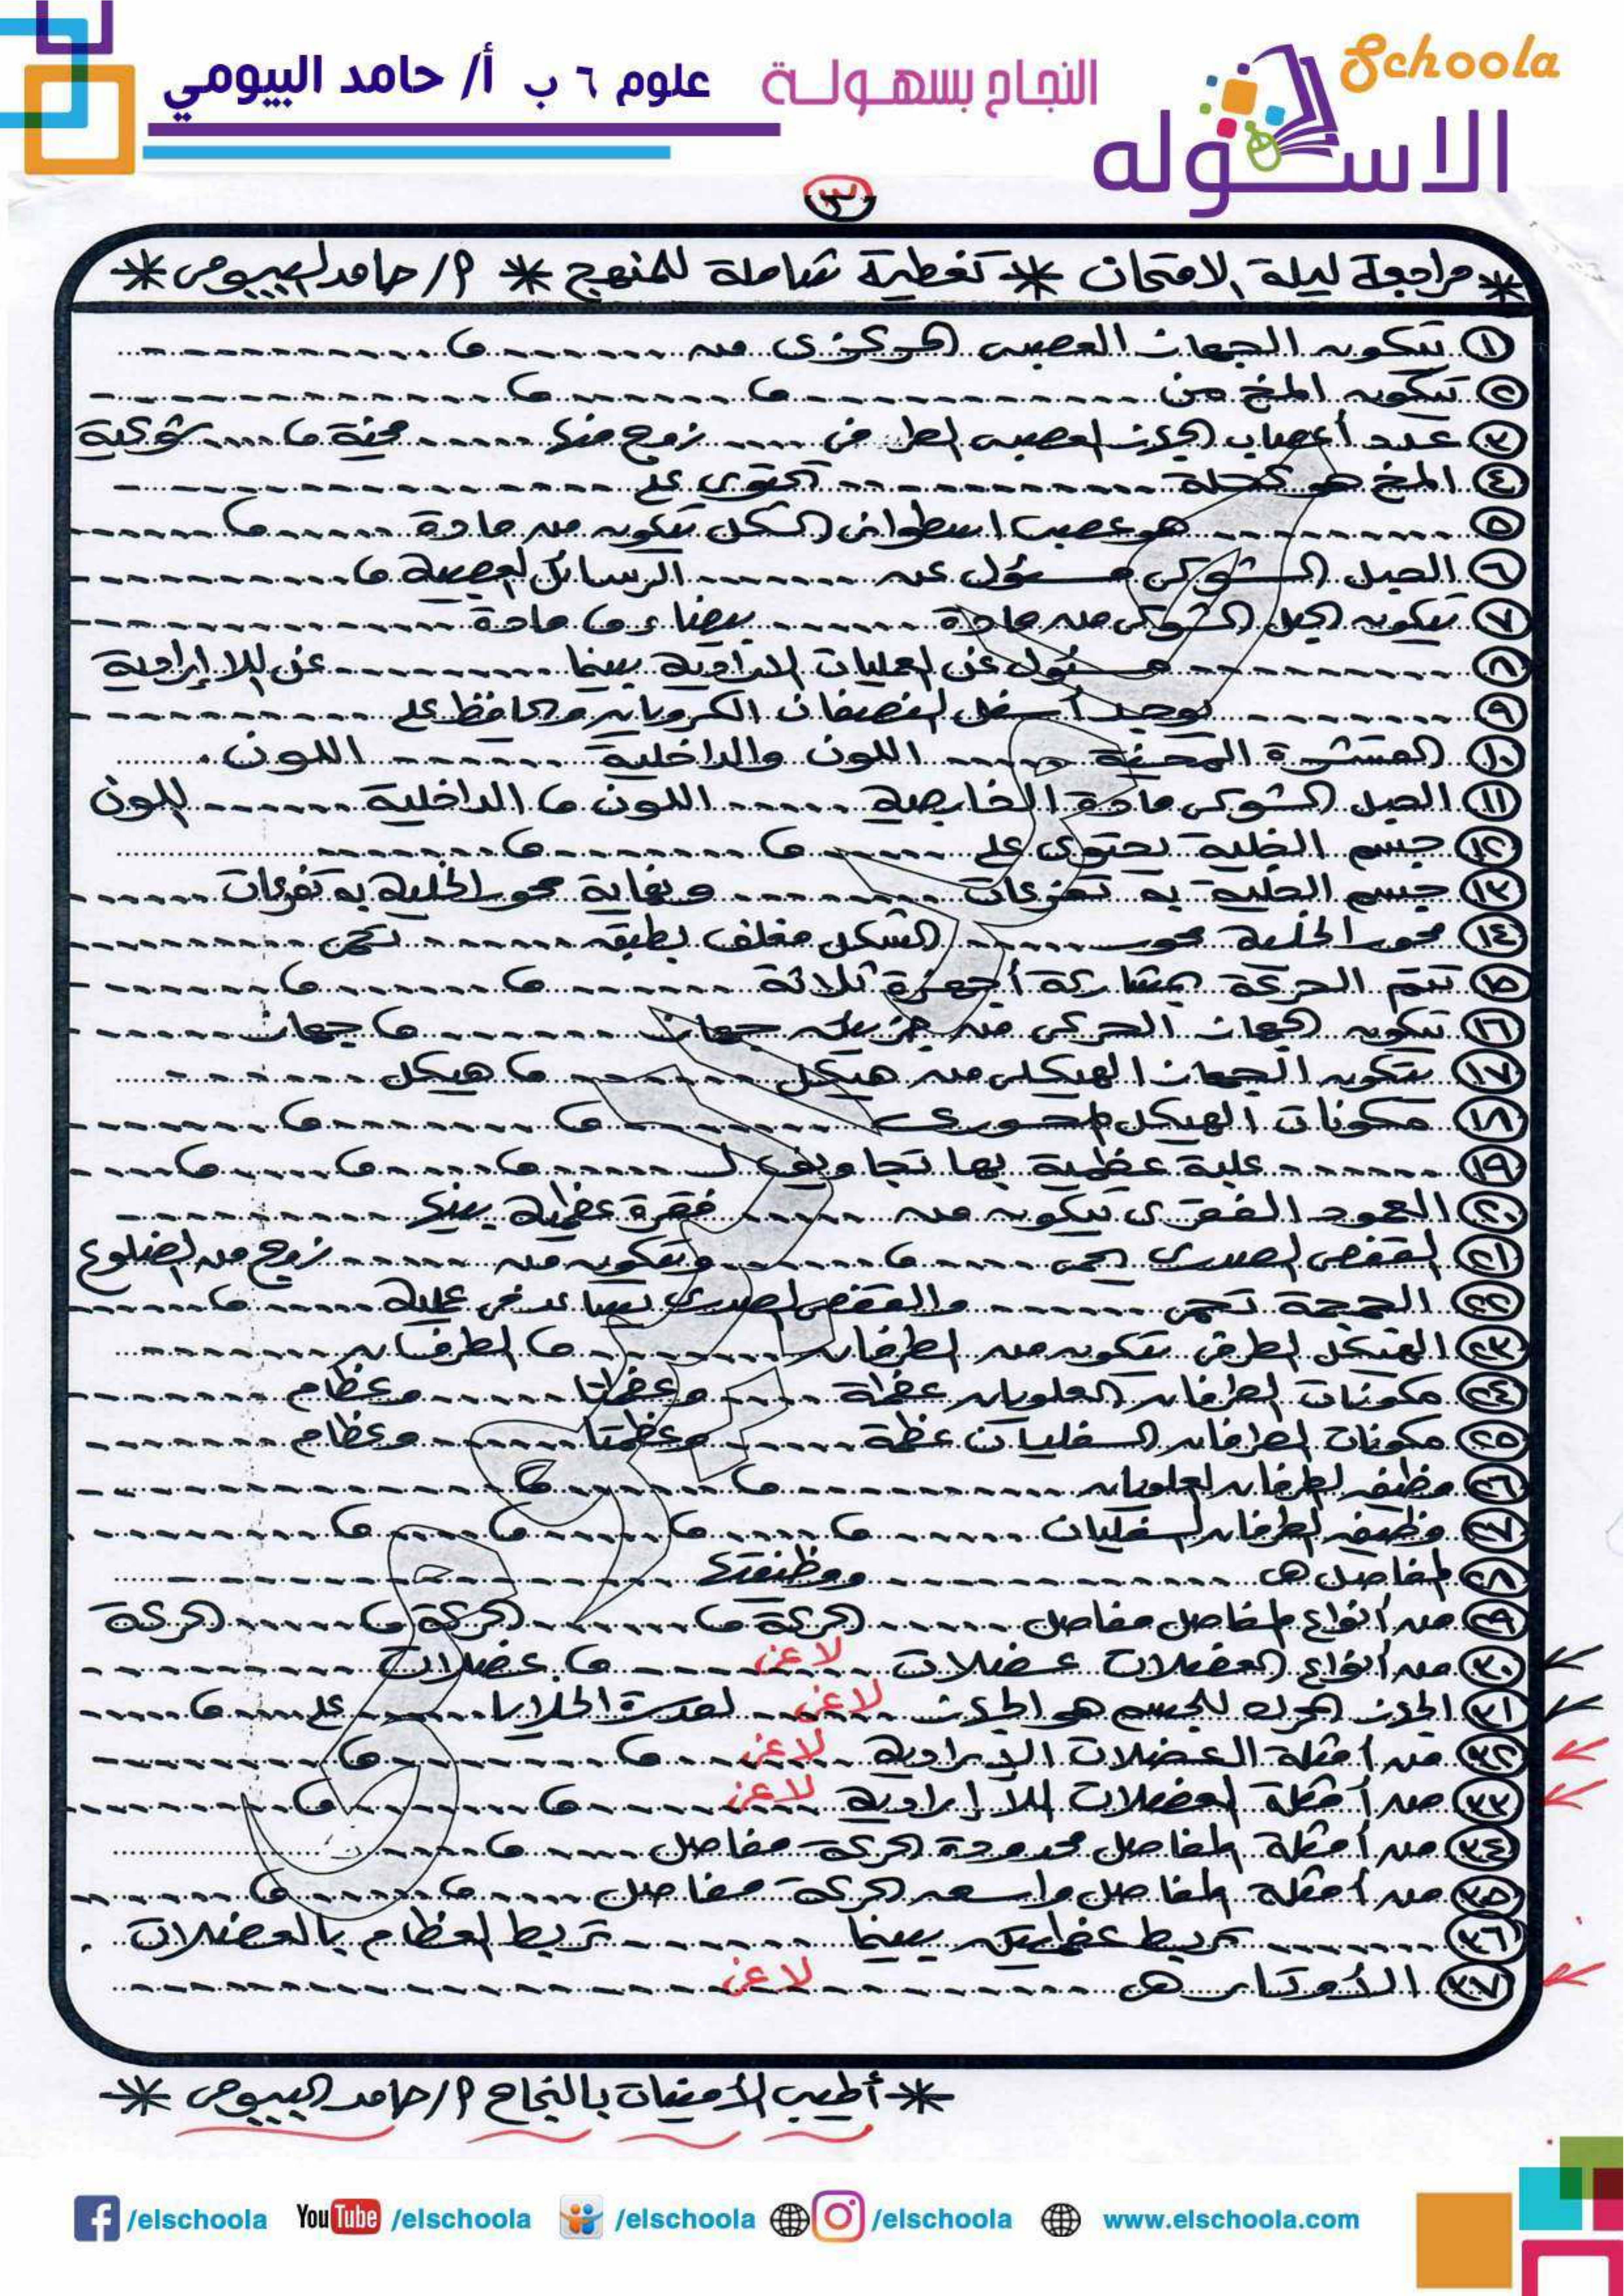 Schoola
الاسكوله
النجاح بسهولة
علوم ٦ ب أ/ حامد البيومي
٣
* مراجعة ليلة الامتحان * تغطية شاملة للمنهج * أ/ حامد البيومى *
١ تتكون الجهاز العصبى المركزى من ........ ، ........
٢ يتكون المخ من ........ ، ........ ، ........
٣ عدد أعصاب الجهاز العصبى الطرفى ........ زوج منها ........ مخية ، ........ شوكية
٤ المخ هو كتلة ........ تحتوى على ........
٥ ........ هو عصب اسطوانى الشكل يتكون من مادة ........ ، ........
٦ الحبل الشوكى مسئول عن ........ الرسائل العصبية ، ........
٧ يتكون الحبل الشوكى من مادة ........ بيضاء ، مادة ........
٨ ........ مسئول عن العمليات الارادية بينما ........ عن اللا إرادية
٩ ........ يوجد أسفل النصفان الكرويان ويحافظ على ........
١٠ القشرة المخية ........ اللون والداخلية ........ اللون
١١ الحبل الشوكى مادة الخارجية ........ اللون ، الداخلية ........ اللون
١٢ جسم الخلية يحتوى على ........ ، ........ ، ........
١٣ جسم الخلية به تفرعات ........ ونهاية محور الخلية به تفرعات ........
١٤ محور الخلية محور ........ الشكل مغلف بطبقة ........ تسمى ........
١٥ تتم الحركة بمشاركة أجهزة ثلاثة ........ ، ........ ، ........
١٦ يتكون الجهاز الحركى من جزئين جهاز ........ ، جهاز ........
١٧ يتكون الجهاز الهيكلى من هيكل ........ ، هيكل ........
١٨ مكونات الهيكل المحورى ........ ، ........ ، ........
١٩ ........ علبة عظمية بها تجاويف لـ ........ ، ........ ، ........ ، ........
٢٠ العمود الفقرى يتكون من ........ فقرة عظمية بينها ........
٢١ القفص الصدرى يحمى ........ ، ........ ويتكون من ........ زوج من الضلوع
٢٢ الجمجمة تحمى ........ والقفص الصدرى يساعد فى عملية ........ ، ........
٢٣ الهيكل الطرفى يتكون من الطرفان ........ ، الطرفان ........
٢٤ مكونات الطرفان العلويان عظمة ........ وعظمتا ........ وعظام ........
٢٥ مكونات الطرفان السفليان عظمة ........ وعظمتا ........ وعظام ........
٢٦ وظيفة الطرفان العلويان ........ ، ........ ، ........
٢٧ وظيفة الطرفان السفليان ........ ، ........ ، ........ ، ........ ، ........
٢٨ المفاصل هى ........ ووظيفتها ........
٢٩ من أنواع المفاصل مفاصل ........ الحركة ، ........ الحركة ، ........ الحركة
٣٠ من أنواع العضلات عضلات ........ لاغى ، عضلات ........
٣١ الجهاز المحرك للجسم هو الجهاز ........ لاغى لقدرة الخلايا على ........ ، ........
٣٢ من أمثلة العضلات الإرادية ........ لاغى ، ........ ، ........
٣٣ من أمثلة العضلات اللا إرادية ........ لاغى ، ........ ، ........
٣٤ من أمثلة المفاصل محدودة الحركة مفاصل ........ ، ........
٣٥ من أمثلة المفاصل واسعة الحركة مفاصل ........ ، ........ ، ........
٣٦ ........ تربط عظمتين بينما ........ تربط العظام بالعضلات .
٣٧ الأوتار هى ........ لاغى ........
* أطيب الأمنيات بالنجاح أ/ حامد البيومى *
/elschoola YouTube /elschoola /elschoola /elschoola www.elschoola.com